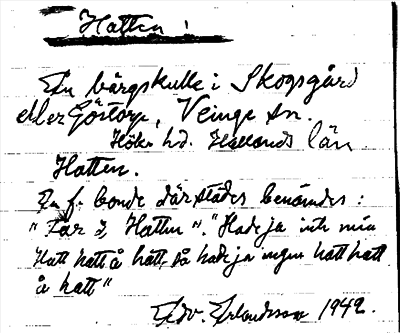 Hatten!
En bärgskulle i Skogsgård
eller Göstorp, Veinge sn.
Höks hd. Hallands län
Hatten.
En f. bonde därstädes benämdes:
"Far i Hatten". "Hade ja inte min
Hatt hatt å hatt, så hade ja ingen hatt hatt
å hatt"
Edv. Erlandsson 1942.